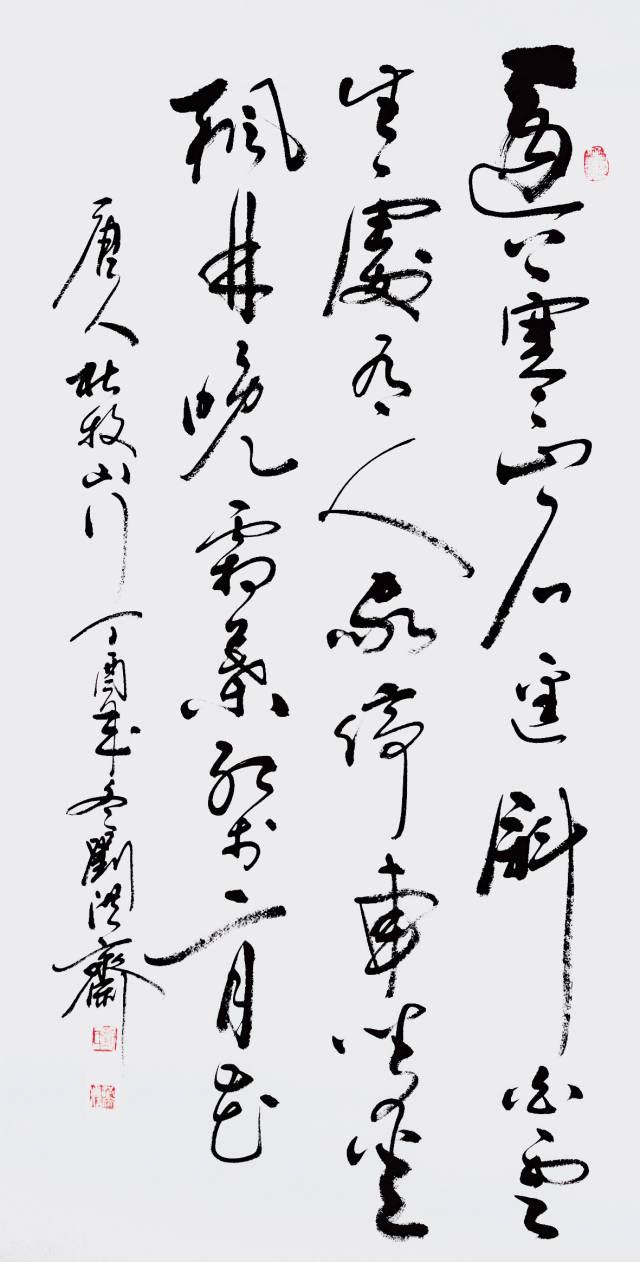 遠上寒山石徑斜白雲
生處有人家停車坐愛
楓林晚霜葉紅於二月花
唐人杜牧山行丁酉歲冬劉洪齋